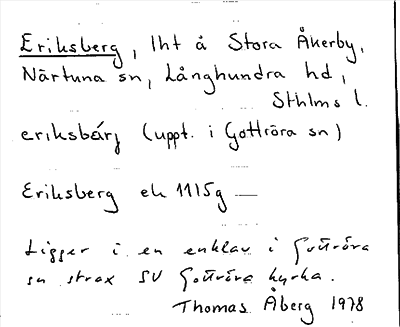 Eriksberg, lht å Stora Åkerby,
Närtuna sn, Långhundra hd,
Sthlms l.
eriksbárj (uppt. i Gottröra sn)
Eriksberg ek 1115g —
Ligger i en enklav i Gottröra
sn strax SV Gottröra kyrka.
Thomas Åberg 1978